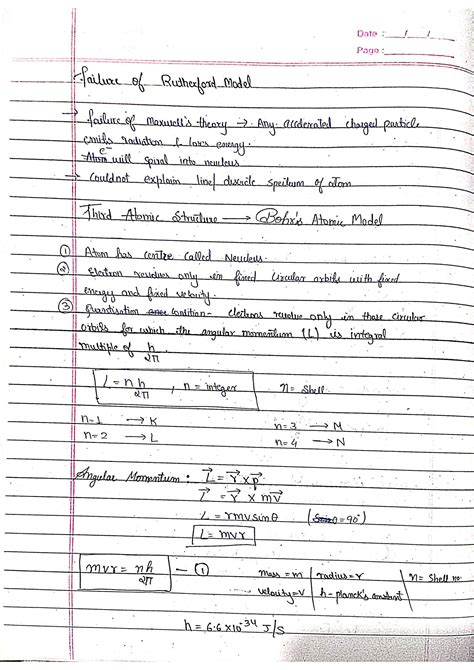 Date : __/__/__
Page : ______
Failure of Rutherford Model
→ failure of Maxwell's theory → Any accelerated charged particle
emits radiation & loss energy.
Atom e⁻ will spiral into neucleus
→ Could not explain line/ discrete spectrum of atom
Third Atomic Structure → Bohr's Atomic Model
① Atom has centre called Neucleus.
② Electron revolves only in fixed circular orbits with fixed
energy and fixed velocity.
③ Quantisation condition - electrons revolve only in those circular
orbits for which the angular momentum (L) is integral
multiple of h/2π
L = nh/2π , n = integer n = Shell
n=1 → K n=3 → M
n=2 → L n=4 → N
Angular Momentum : L⃗ = r⃗ x p⃗
L⃗ = r⃗ x mv⃗
L = rmv sinθ (θ=90°)
L = mvr
mvr = nh/2π — ① mass = m | radius = r | n = Shell no
velocity = v | h - planck's constant
h = 6.6 x 10⁻³⁴ J/s